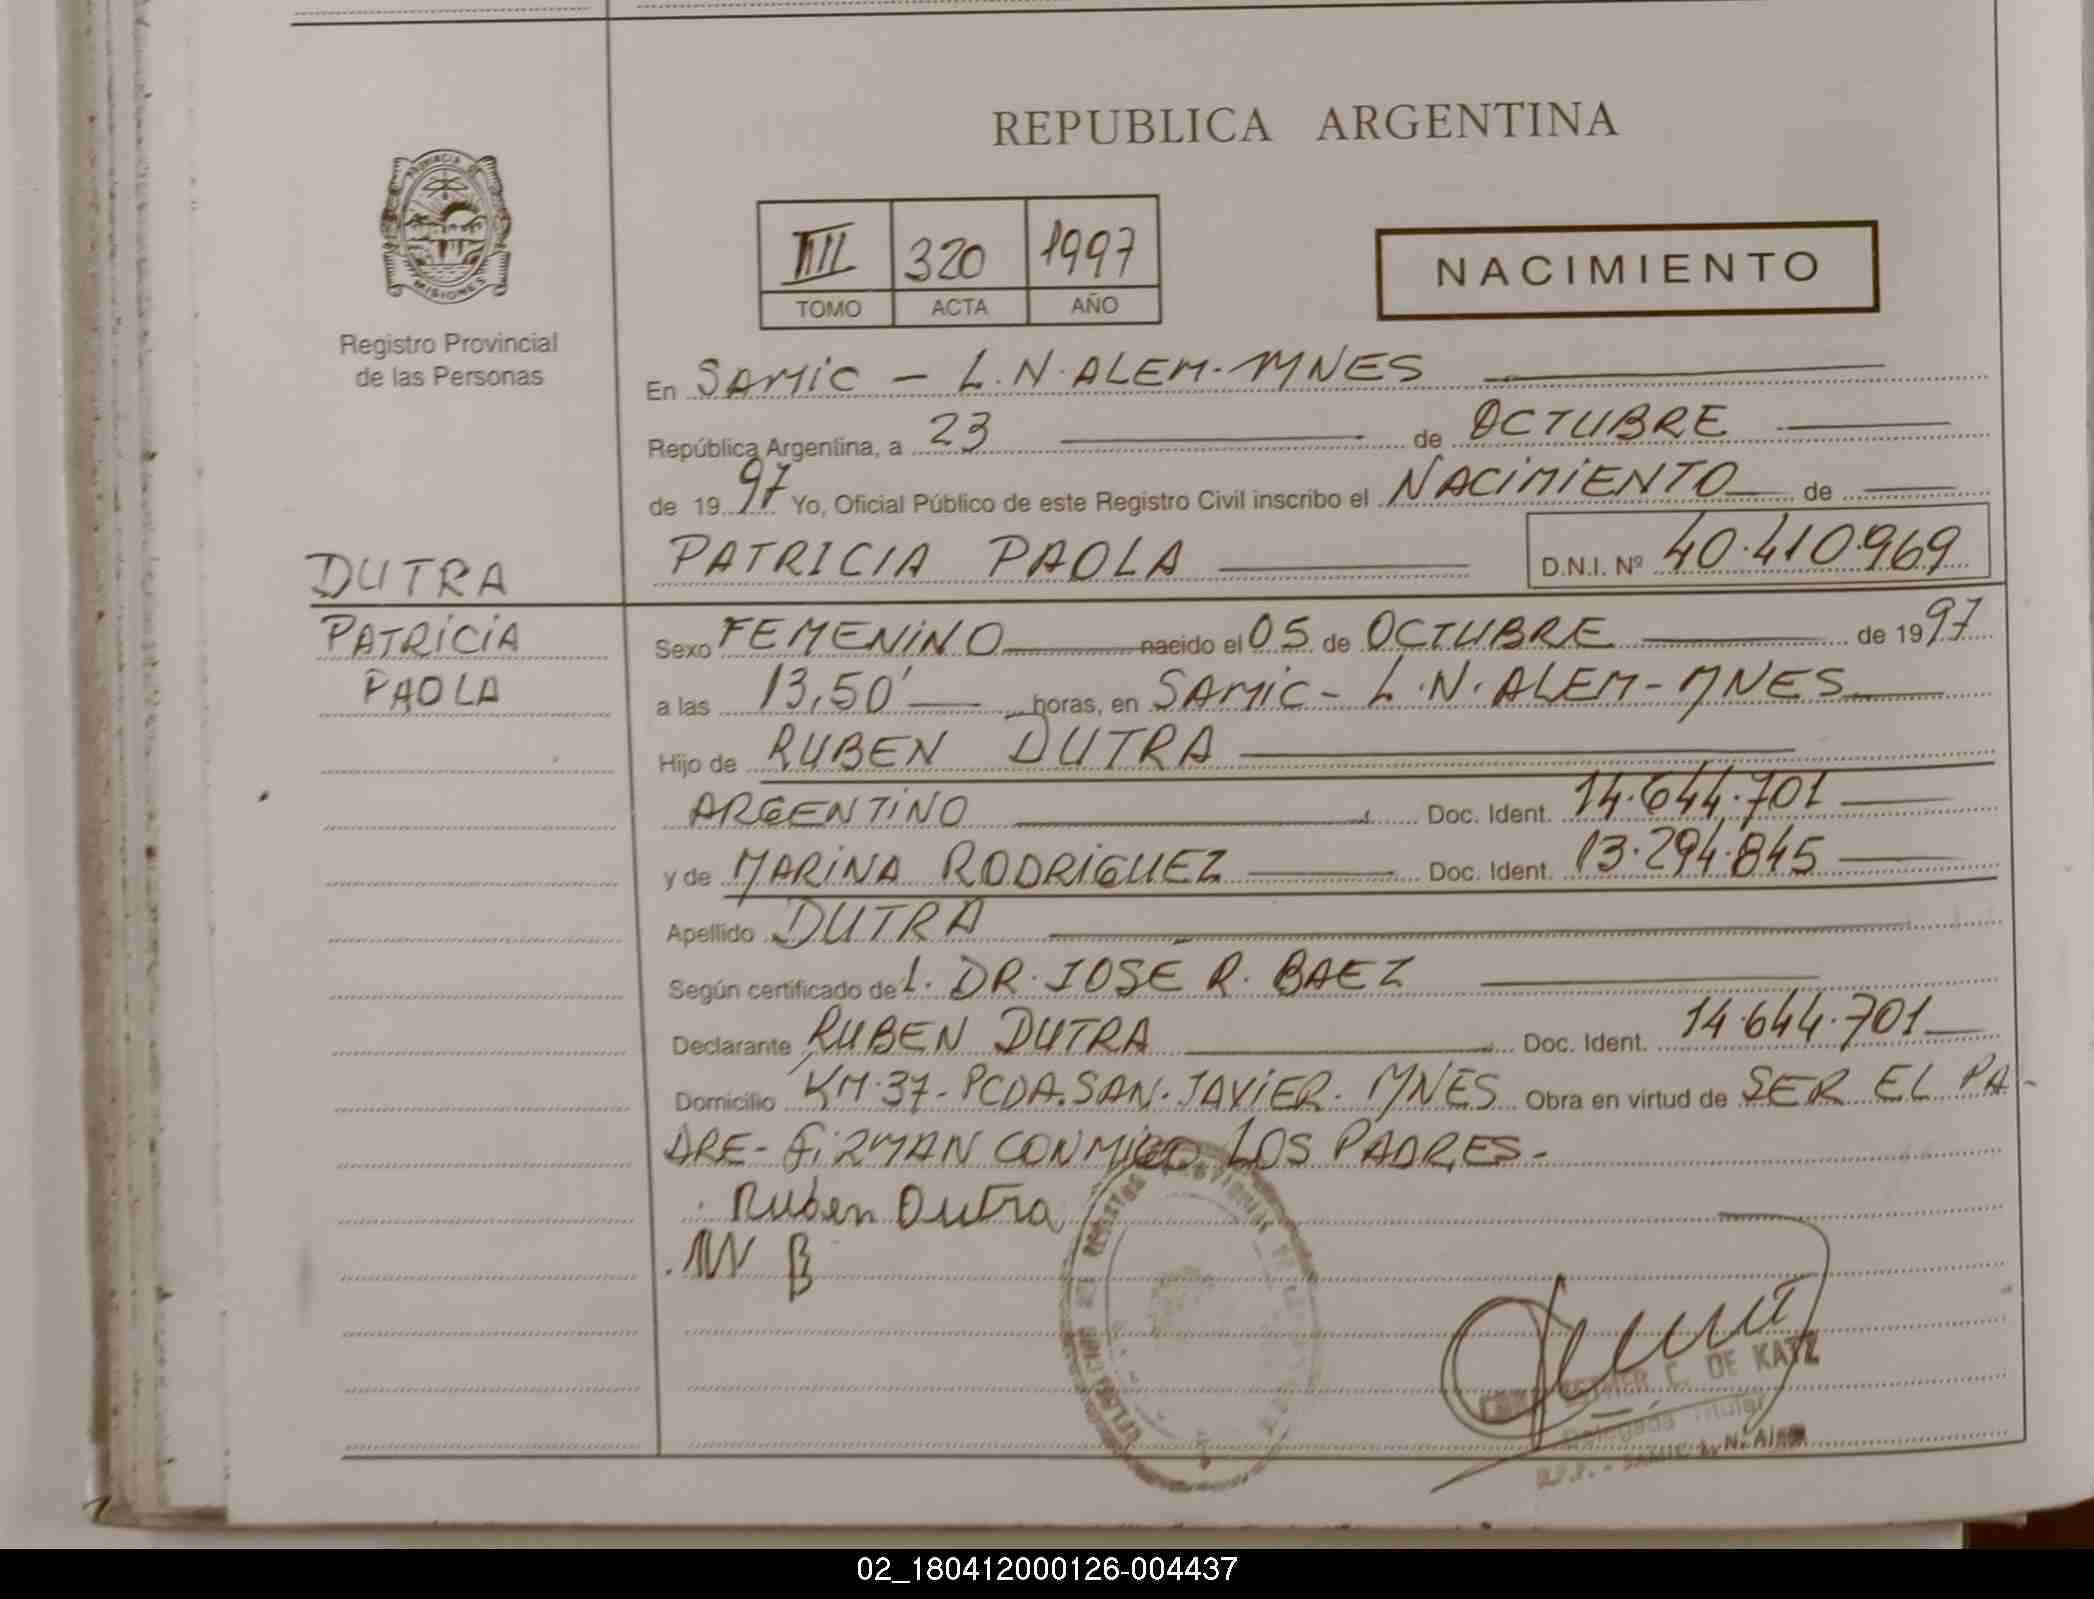 REPUBLICA ARGENTINA
PROVINCIA DE
MISIONES
Registro Provincial
de las Personas
III 320 1997
TOMO ACTA AÑO
NACIMIENTO
En SAMIC - L.N. ALEM - MNES
República Argentina, a 23 de OCTUBRE
de 1997 Yo, Oficial Público de este Registro Civil inscribo el NACIMIENTO de
DUTRA
PATRICIA PAOLA D.N.I. Nº 40.410.969
PATRICIA
PAOLA
Sexo FEMENINO nacido el 05 de OCTUBRE de 1997
a las 13,50' horas, en SAMIC - L.N. ALEM - MNES
Hijo de RUBEN DUTRA
ARGENTINO Doc. Ident. 14.644.701
y de MARINA RODRIGUEZ Doc. Ident. 13.294.845
Apellido DUTRA
Según certificado de L. DR. JOSE R. BAEZ
Declarante RUBEN DUTRA Doc. Ident. 14.644.701
Domicilio KM.37 - PCDA. SAN. JAVIER - MNES Obra en virtud de SER EL PA-
DRE - FIRMAN CONMIGO LOS PADRES -
Ruben Dutra
C. DE KATZ
Delegada Titular
SAMIC L.N. Alem
02_180412000126-004437